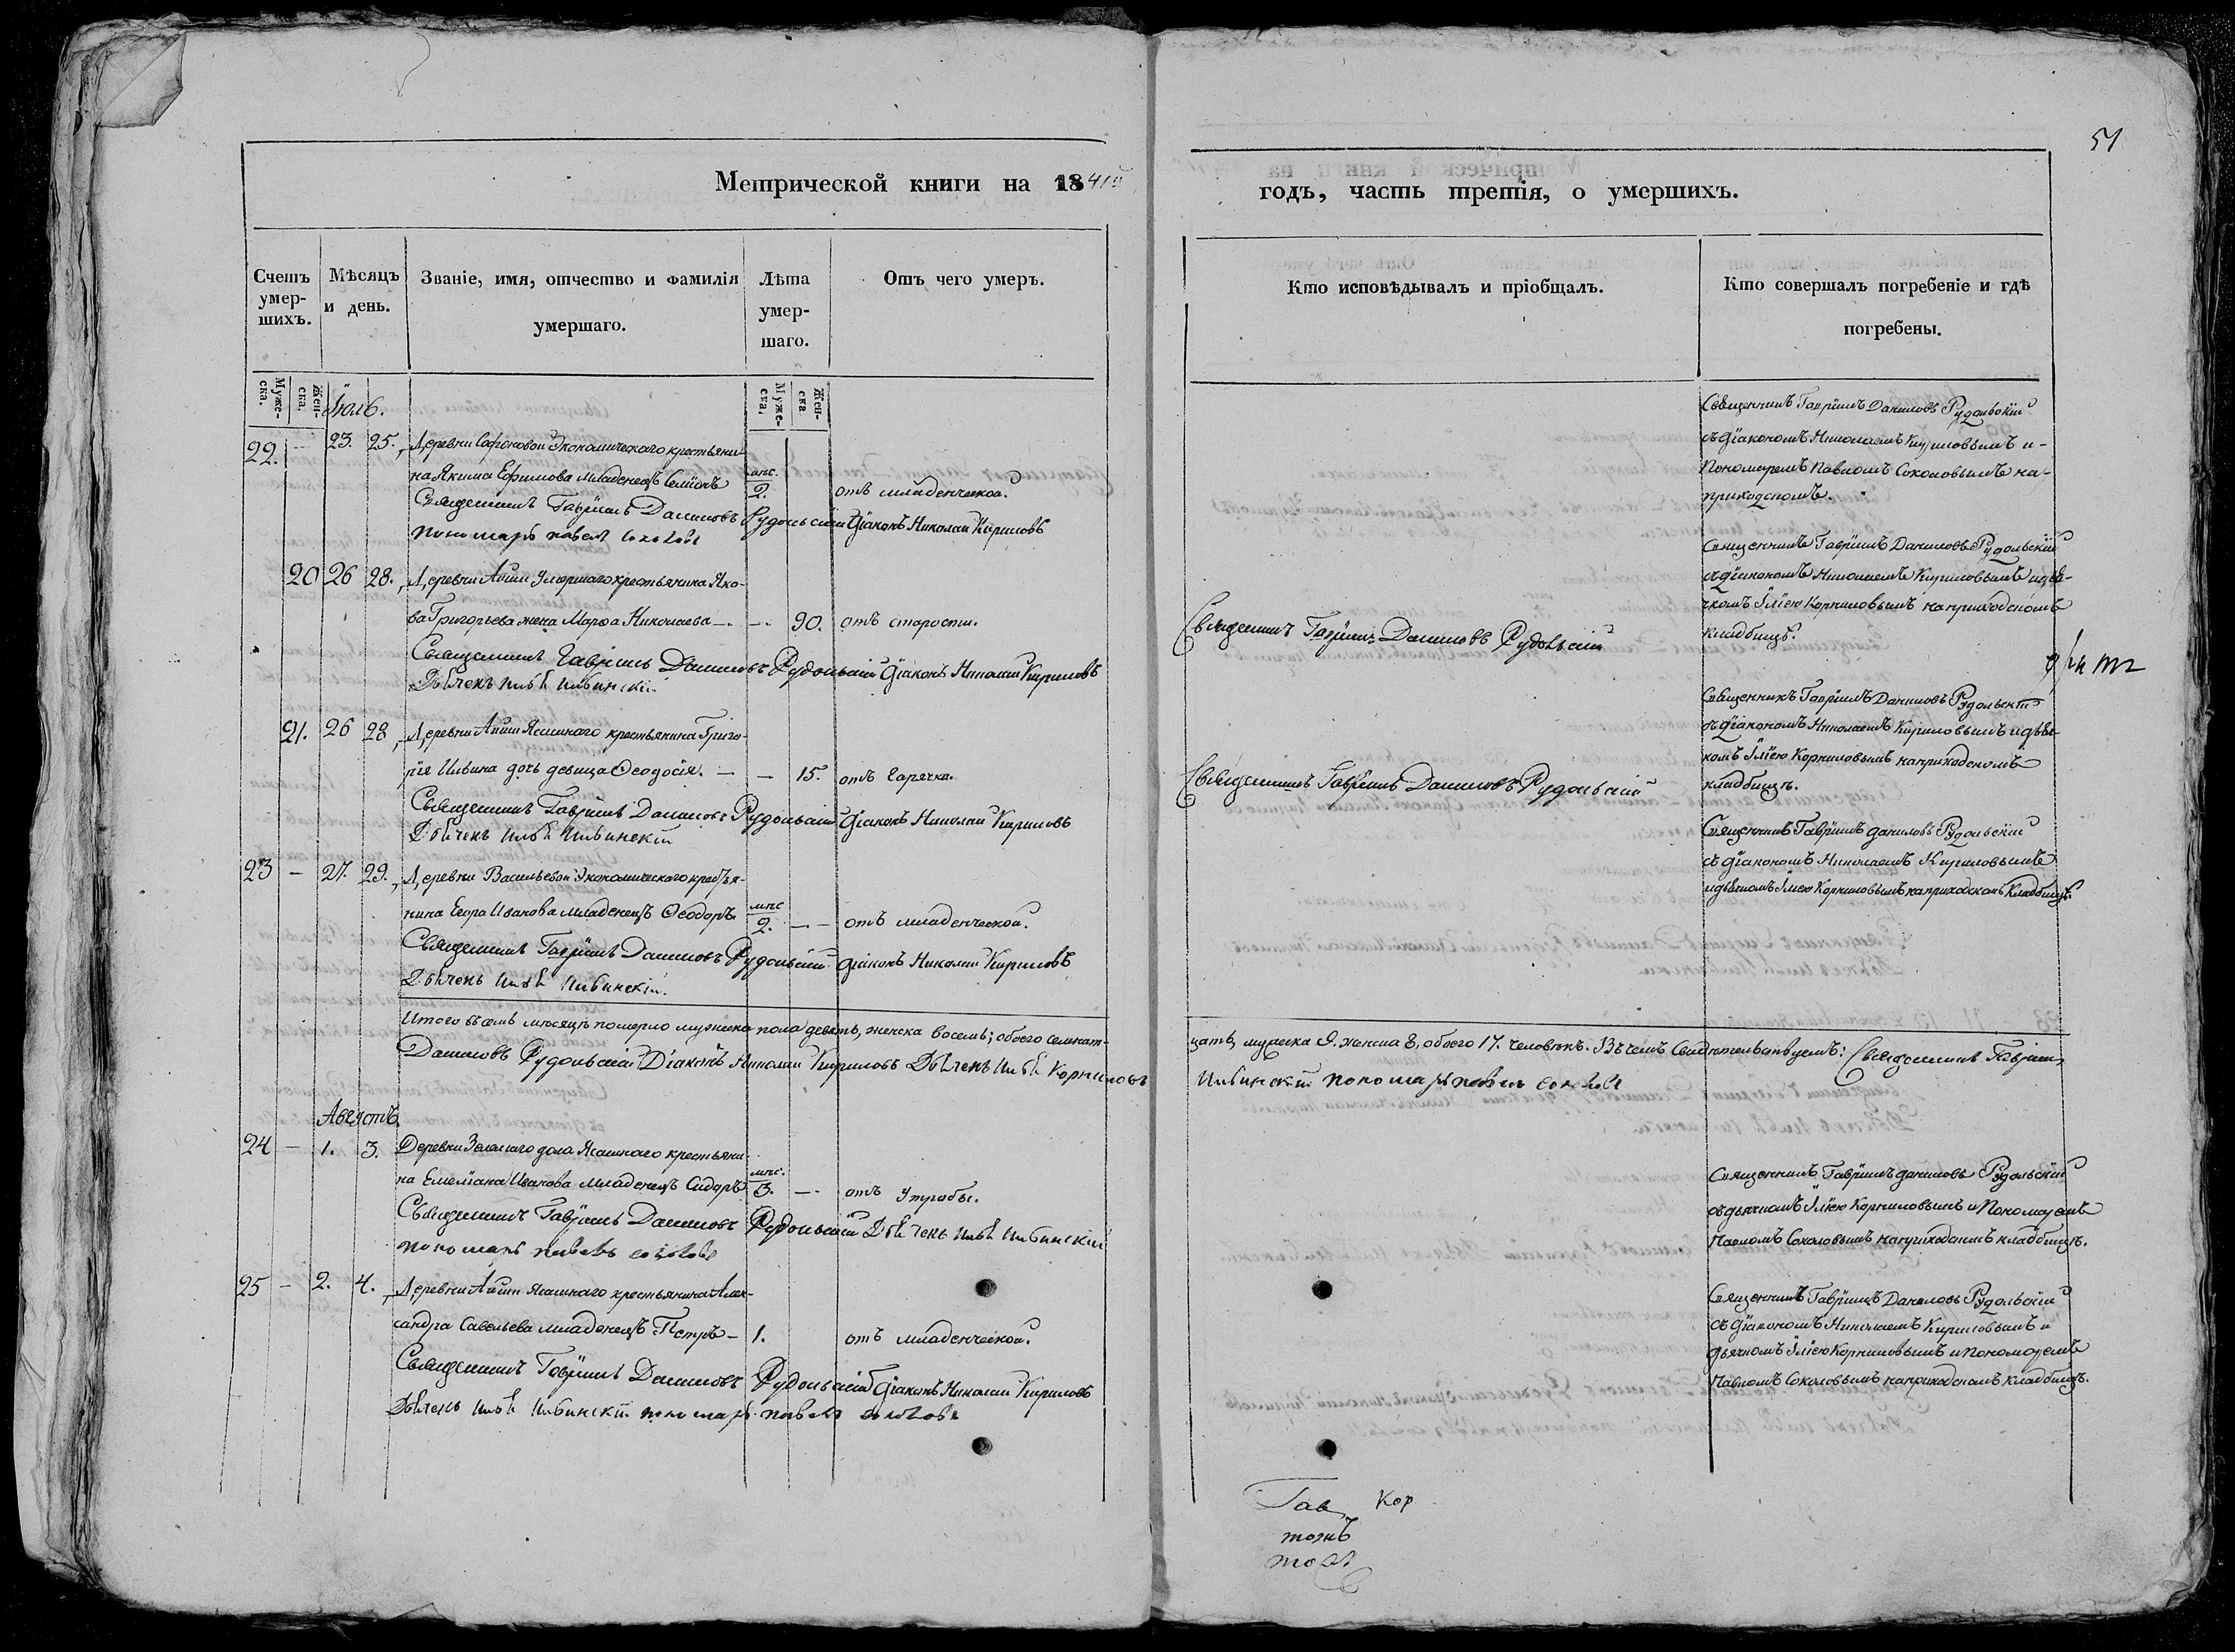 51
Метрической книги на 1841й
годъ, часть третія, о умершихъ.
Счетъ умер-шихъ.
Мѣсяцъ и день.
Званіе, имя, отчество и фамилія умершаго.
Лѣта умер-шаго.
Отъ чего умеръ.
Кто исповѣдывалъ и пріобщалъ.
Кто совершалъ погребеніе и гдѣ погребены.
Муже-ска.
Жен-ска.
Муже-ска.
Жен-ска
Іюль.
22. — 23. 25. Деревни Сафоновой Экономическаго крестьяни-
на Якима Ефимова младенецъ Семіонъ
мѣс. 2. отъ младенческой.
Священникъ Гавріилъ Даниловъ Рудольскій Діаконъ Николай Кириловъ
пономарь павелъ соколовъ
Священникъ Гавріилъ Даниловъ Рудольскій
съ діакономъ Николаемъ Кириловымъ и-
Пономаремъ Павломъ Соколовымъ на-
приходскомъ.
20 26 28. Деревни Айши Умершаго крестьянина Яко-
ва Григорьева жена Марѳа Николаева — — 90. отъ старости.
Священникъ Гавріилъ Даниловъ Рудольскій Діаконъ Николай Кириловъ
Дьячекъ Илья Ильинскій
Священникъ Гавріилъ Даниловъ Рудольскій
Священникъ Гавріилъ Даниловъ Рудольскій
съ діакономъ Николаемъ Кириловымъ и дья-
чкомъ Іліею Корниловымъ на приходскомъ
кладбищѣ.
21. 26 28, Деревни Айши Ясашнаго крестьянина Григо-
рія Ильина дочь девица Ѳеодосія. — — 15. отъ Гарячка.
Священникъ Гавріилъ Даниловъ Рудольскій Діаконъ Николай Кириловъ
Дьячекъ Илья Ильинскій
Священникъ Гавріилъ Даниловъ Рудольскій
Священникъ Гавріилъ Даниловъ Рудольскій
съ діакономъ Николаемъ Кириловымъ и дья-
комъ Іліею Корниловымъ на приходскомъ
кладбищѣ.
23 — 27. 29. Деревни Васильевой Экономическаго крестья-
нина Егора Иванова младенецъ Ѳеодоръ. мѣс 2. — — отъ младенческой.
Священникъ Гавріилъ Даниловъ Рудольскій Діаконъ Николай Кириловъ
Дьячекъ Илья Ильинскій.
Священникъ Гавріилъ даниловъ Рудольскій
съ діакономъ Николаемъ Кириловымъ
и дьячкомъ Іліею Корниловымъ на приходскомъ Кладбищѣ.
Итого въ семъ мѣсяцѣ померло мужеска пола девять, женска восемь; обоего семнат-
цать, мужеска 9. женска 8, обоего 17. человѣкъ. Въ чемъ Свидѣтельствуемъ: Священникъ Гавріилъ
Даниловъ Рудольскій Діаконъ Николай Кириловъ Дьячекъ Илья Корниловъ
Ильинскій пономарь павелъ соколовъ
Августъ.
24 — 1. 3. Деревни Зеленаго дола Ясашнаго крестьяни-
на Емеліана Иванова младенецъ Сидоръ мѣс. 3. — отъ Утробы.
Священникъ Гавріилъ Даниловъ Рудольскій Дьячекъ Илья Ильинскій
пономарь павелъ соколовъ
Священникъ Гавріилъ даниловъ Рудольскій
съ дьячкомъ Іліею Корниловымъ и Пономаремъ
Павломъ Соколовымъ на приходскомъ кладбищѣ.
25 — 2. 4. Деревни Айши Ясашнаго крестьянина Алек-
сандра Савельева младенецъ Петръ — 1. отъ младенческой.
Священникъ Гавріилъ Даниловъ Рудольскій Діаконъ Николай Кириловъ
Дьячекъ Илья Ильинскій пономарь павелъ соколовъ
Священникъ Гавріилъ Даниловъ Рудольскій
съ діакономъ Николаемъ Кириловымъ и
дьячкомъ Іліею Корниловымъ и пономаремъ
Павломъ Соколовымъ на приходскомъ кладбищѣ.
Гав Кор